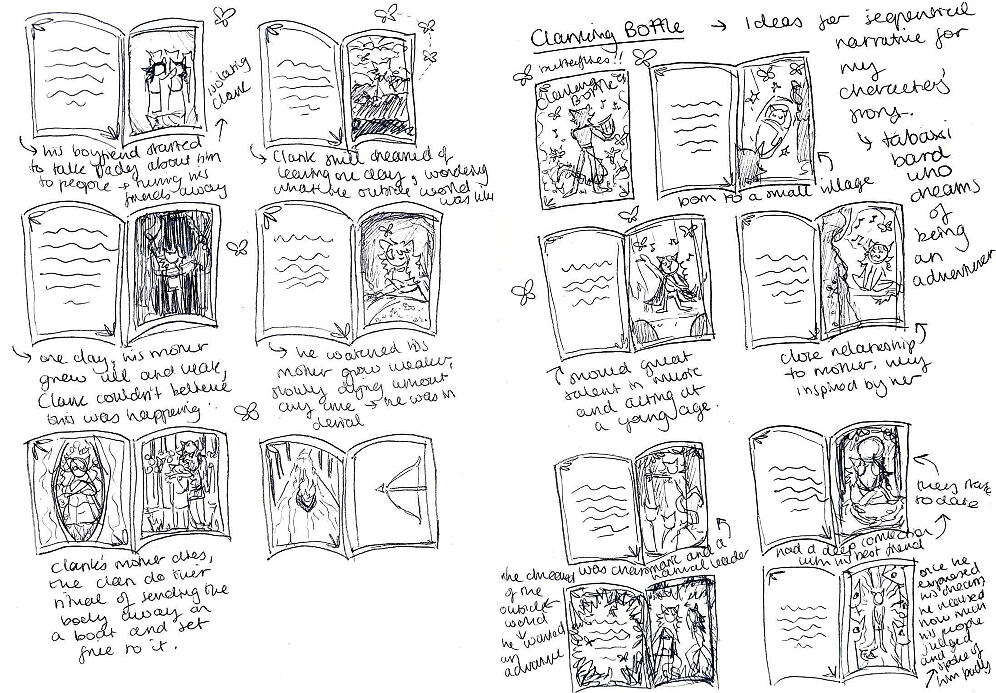 isolating
Clank
his boyfriend started
to talk badly about him
to people + turning his
friends away
Clank still dreamed of
leaving one day, wondering
what the outside world
was like
one day, his mother
grew ill and weak,
Clank couldn't believe
this was happening.
he watched his
mother grow weaker,
slowly dying without
any cure → he was in
denial
Clank's mother dies,
the clan do their
ritual of sending the
body away on
a boat and set
fire to it.
Clanking Bottle → Ideas for sequential
narrative for
my
characters'
story.
↳ tabaxi
bard
who
dreams
of
being
an
adventurer
butterflies!!
Clanking
Bottle
born to a small village
showed great
talent in music
and acting at
a young age.
close relationship
to mother, very
inspired by her
was charismatic and a
natural leader
had a deep connection
with his best friend
they start
to date
he dreamed
of the
outside
world
he wanted
an
adventure
once he
expressed
his dream,
he realised
how much
his people
judged
and
spoke of
him badly